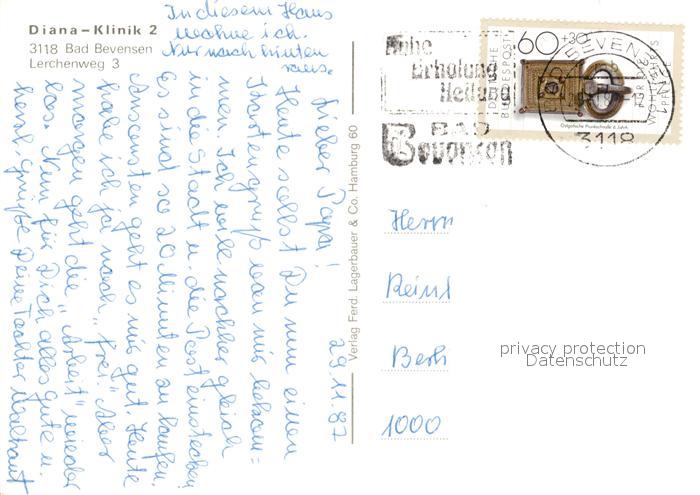 Diana-Klinik 2
3118 Bad Bevensen
Lerchenweg 3
In diesem Haus
wohne ich.
Nur nach hinten
raus.
29.11.87
Lieber Papa!
Heute sollst Du nun einen
Kartengruß von mir bekom=
men. Ich will nachher gleich
in die Stadt u. die Post einstecken
Es sind so 20 Minuten zu laufen.
Ansonsten geht es mir gut. Heute
habe ich ja noch "frei" Aber
morgen geht die "Arbeit" wieder
los. Nun für Dich alles Gute u.
herzl. Grüße Deine Tochter Waltraut
Verlag Ferd. Lagerbauer & Co. Hamburg 60
Ruhe
Erholung
Heilung
BAD
Bevensen
DEUTSCHE
BUNDESPOST
60+30
FÜR DIE
WOHLFAHRTSPFLEGE
Ostgotische Prunkschnalle 6. Jahrh.
BEVENSEN 1
3118
Herrn
Reinh
Berli
1000
privacy protection
Datenschutz